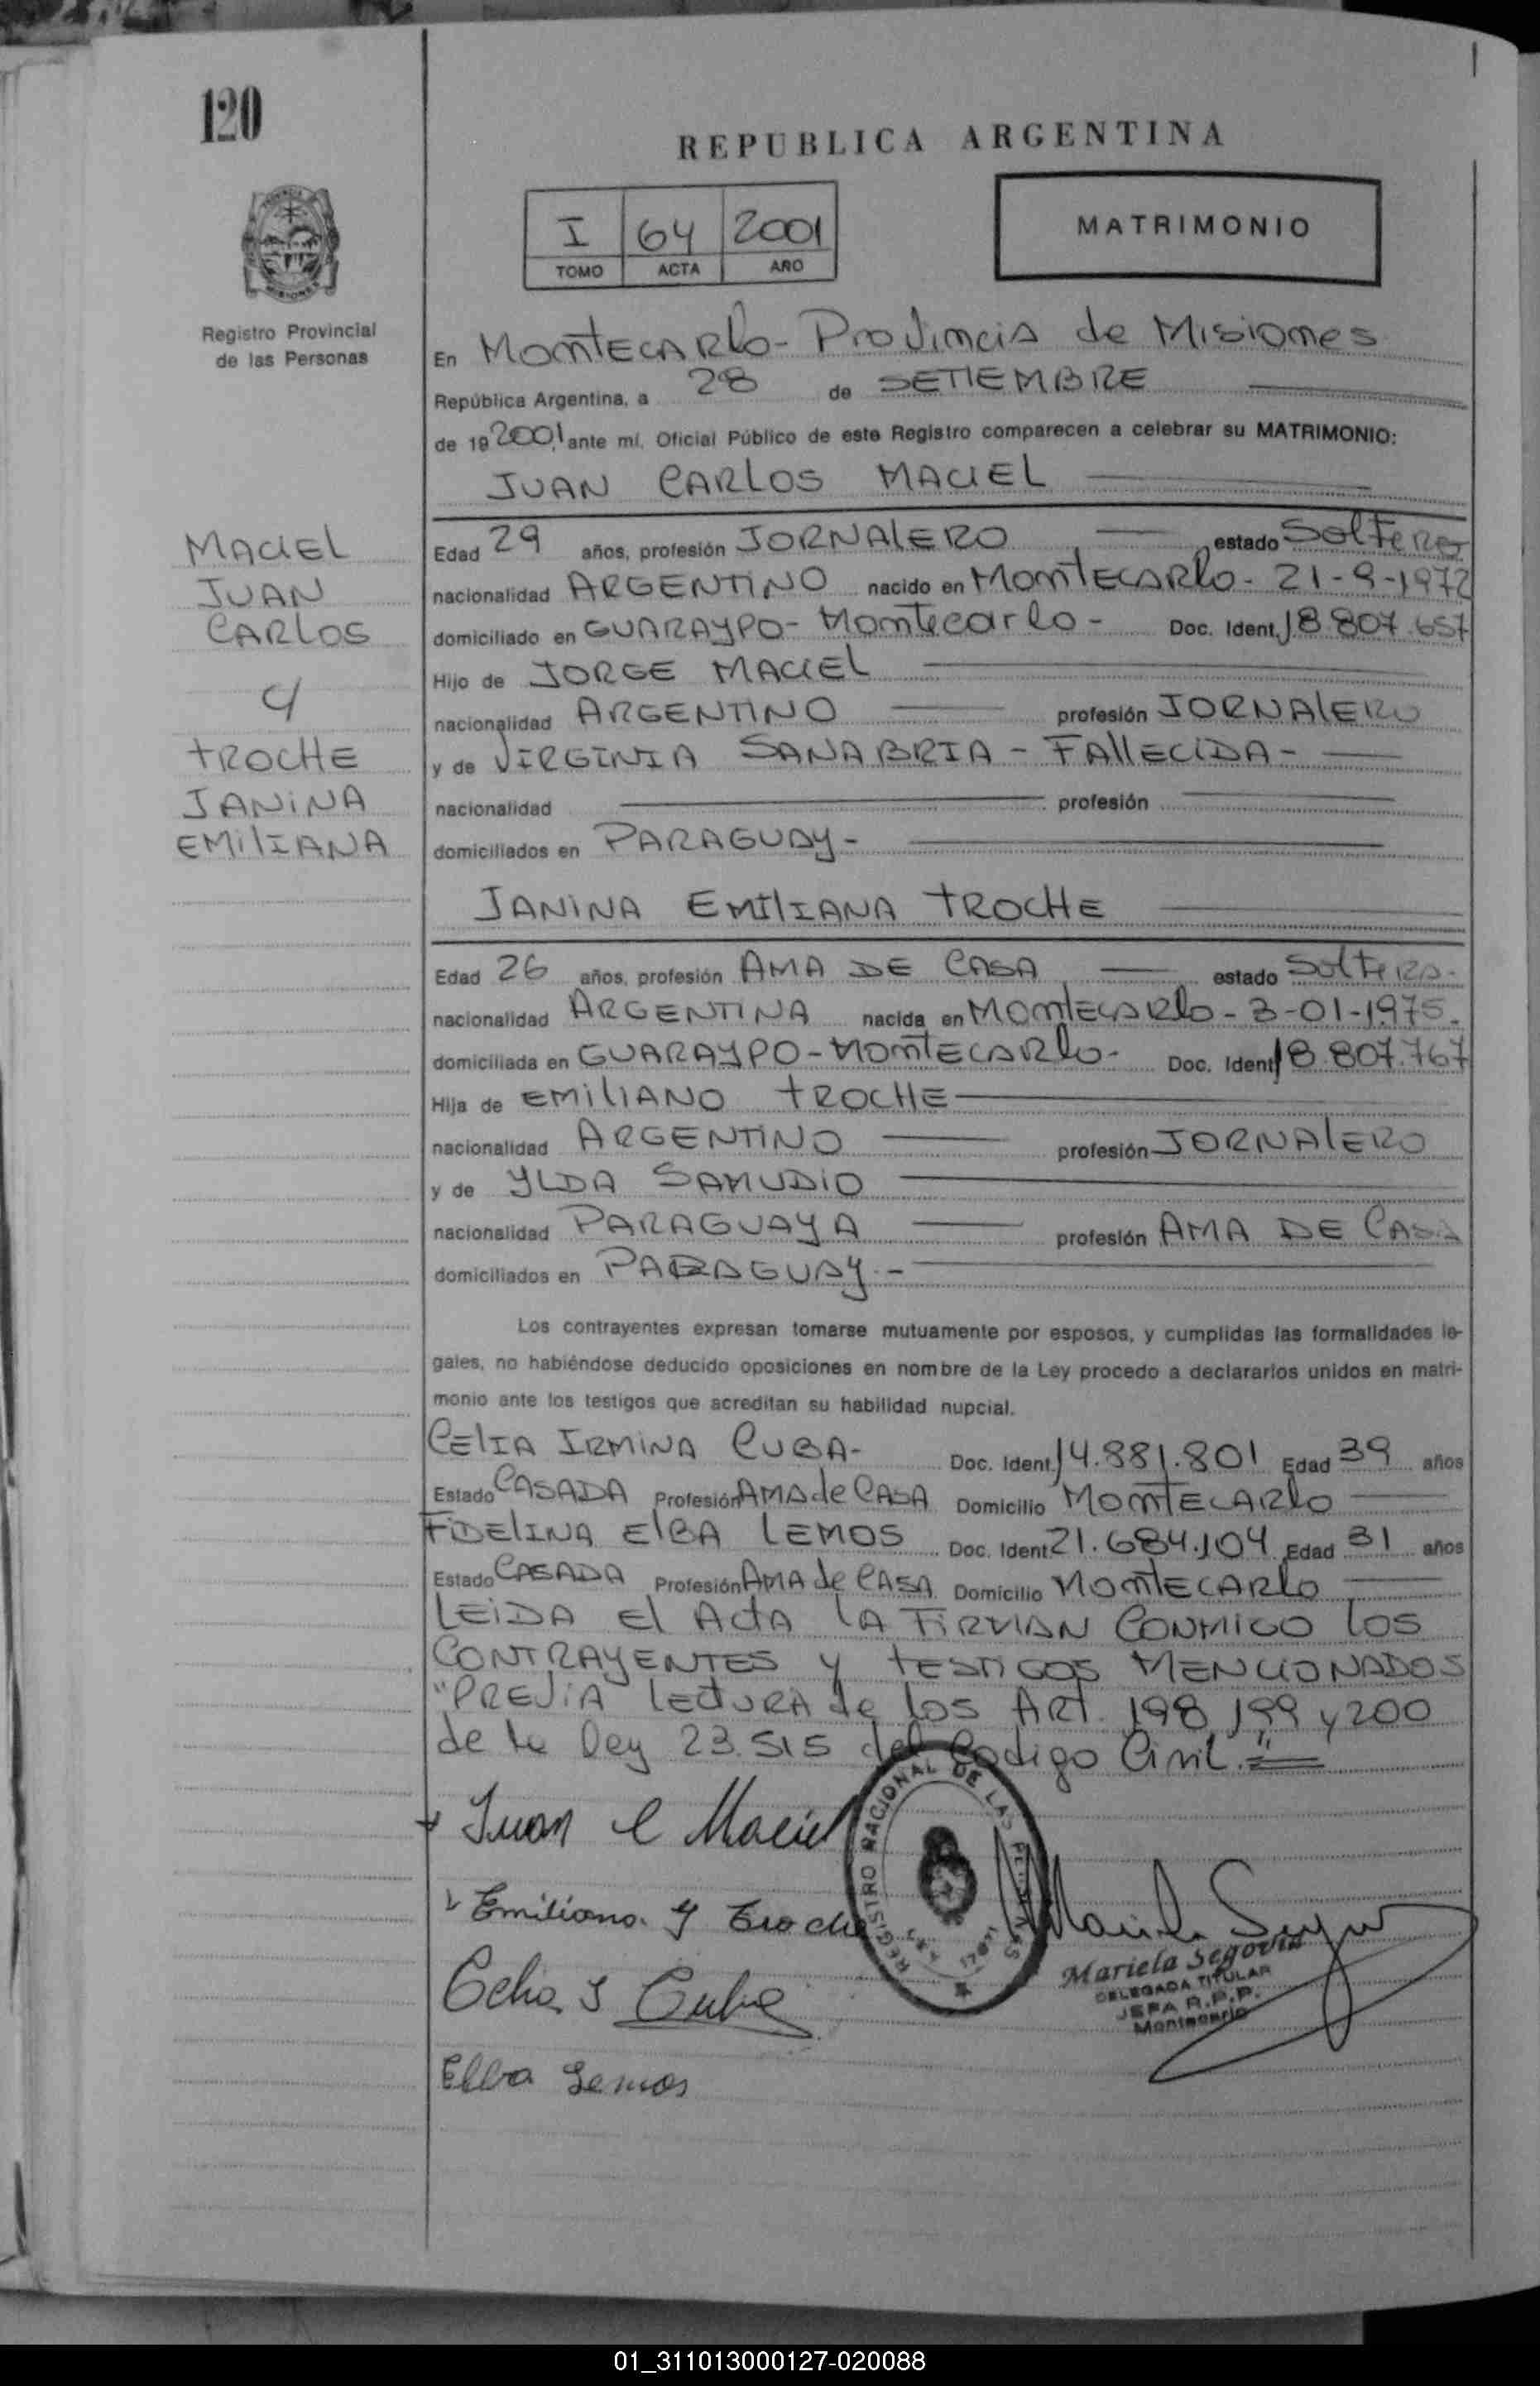 120
REPUBLICA ARGENTINA
I 64 2001
TOMO ACTA AÑO
MATRIMONIO
Registro Provincial
de las Personas
En Montecarlo - Provincia de Misiones
República Argentina, a 28 de SETIEMBRE
de 19 2001, ante mí, Oficial Público de este Registro comparecen a celebrar su MATRIMONIO:
JUAN CARLOS MACIEL
MACIEL
JUAN
CARLOS
c/
TROCHE
JANINA
EMILIANA
Edad 29 años, profesión JORNALERO estado Soltero
nacionalidad ARGENTINO nacido en Montecarlo - 21-9-1972
domiciliado en GUARAYPO - Montecarlo - Doc. Ident. 18.807.657
Hijo de JORGE MACIEL
nacionalidad ARGENTINO profesión JORNALERO
y de VIRGINIA SANABRIA - FALLECIDA -
nacionalidad profesión
domiciliados en PARAGUAY -
JANINA EMILIANA TROCHE
Edad 26 años, profesión AMA DE CASA estado Soltera -
nacionalidad ARGENTINA nacida en Montecarlo - 3-01-1975.
domiciliada en GUARAYPO - Montecarlo - Doc. Ident. 18.807.767
Hija de EMILIANO TROCHE
nacionalidad ARGENTINO profesión JORNALERO
y de YLDA SAMUDIO
nacionalidad PARAGUAYA profesión AMA DE CASA
domiciliados en PARAGUAY -
Los contrayentes expresan tomarse mutuamente por esposos, y cumplidas las formalidades le-
gales, no habiéndose deducido oposiciones en nombre de la Ley procedo a declararlos unidos en matri-
monio ante los testigos que acreditan su habilidad nupcial.
CELIA IRMINA CUBA - Doc. Ident. 14.881.801 Edad 39 años
Estado CASADA Profesión AMA de CASA Domicilio Montecarlo
FIDELINA ELBA LEMOS Doc. Ident. 21.684.104 Edad 31 años
Estado CASADA Profesión AMA de CASA Domicilio Montecarlo
LEIDA El Acta LA FIRMAN CONMIGO los
CONTRAYENTES y TESTIGOS MENCIONADOS
"PREVIA LECTURA de los ART. 198, 199 y 200
de la Ley 23.515 del Codigo Civil."
Juan C Maciel
Emiliana J Troche
Celia I Cuba
Elba Lemos
REGISTRO NACIONAL DE LAS PERSONAS
Mariela Segovia
DELEGADA TITULAR
JEFA R.P.P.
Montecarlo
01_311013000127-020088